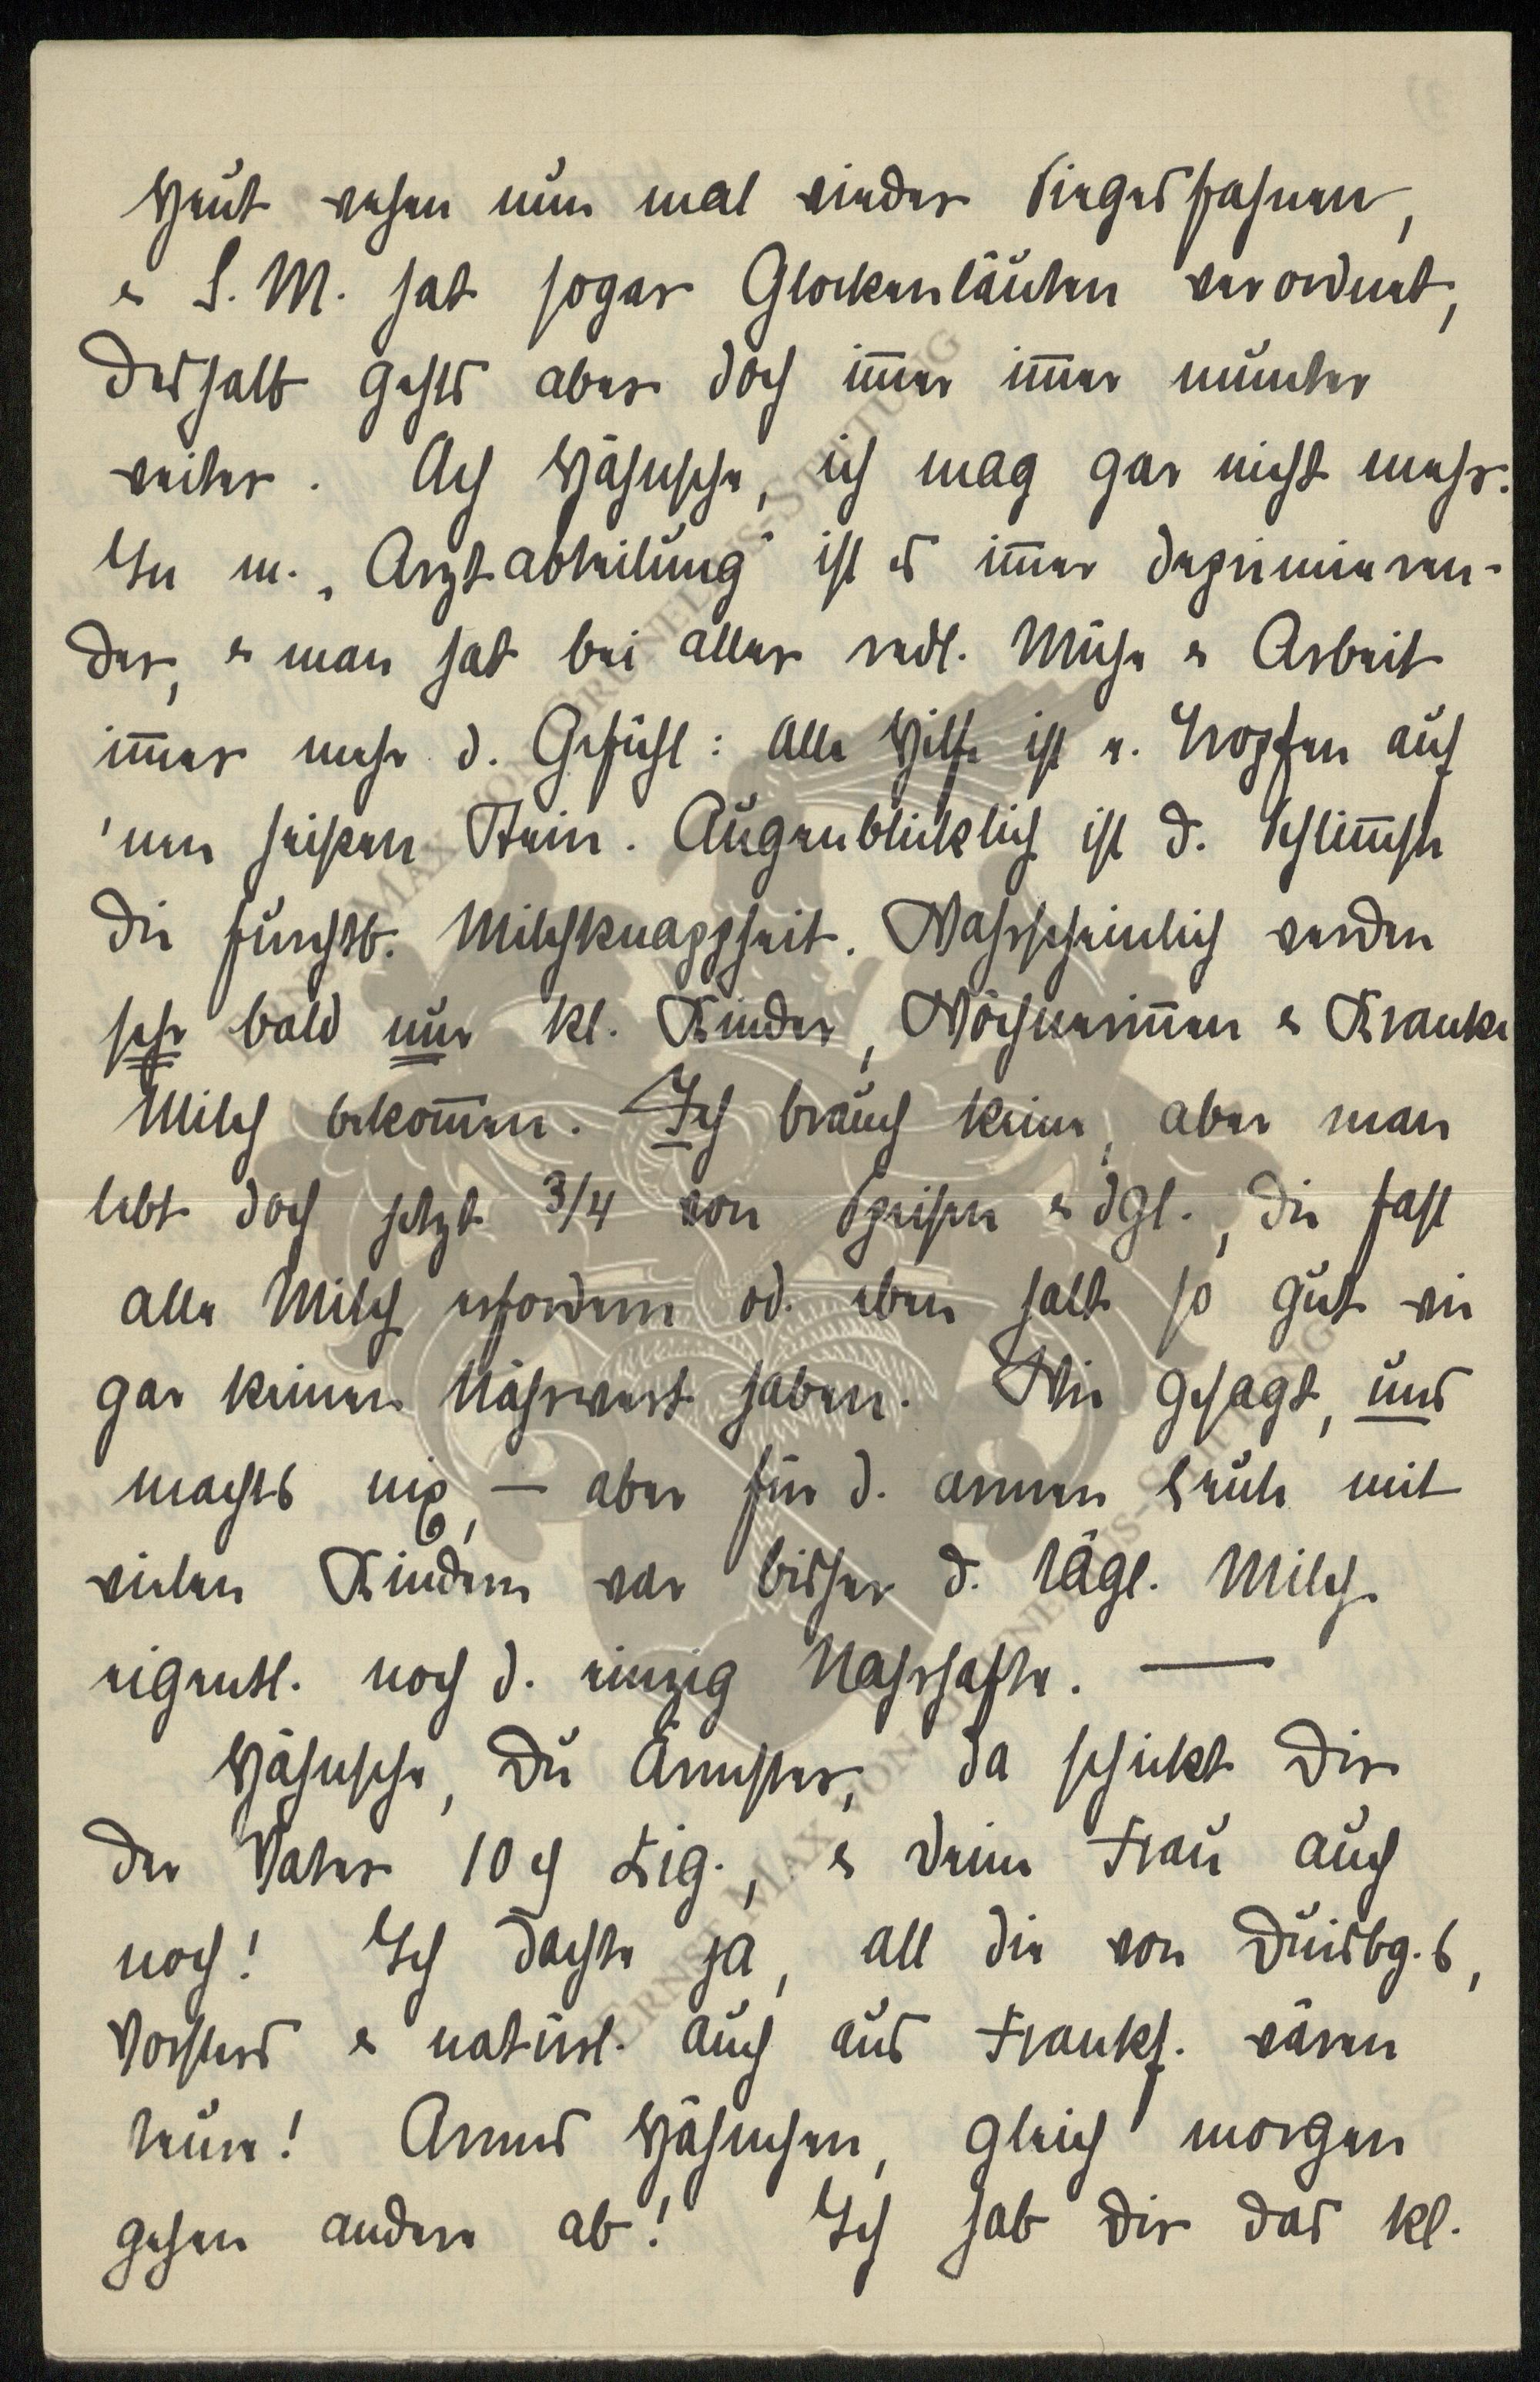 Heut wehen nun mal wieder Siegesfahnen,
& S. M. hat sogar Glockenläuten verordnet,
deshalb gehts aber doch im̅er im̅er munter
weiter. Ach Hähnsche, ich mag gar nicht mehr.
In m. „Arztabteilung" ist es im̅er deprimieren-
der, & man hat bei aller redl. Mühe & Arbeit
im̅er mehr d. Gefühl: alle Hilfe ist e. Tropfen auf
'nen heißen Stein. Augenblicklich ist d. Schlim̅ste
die furchtb. Milchknappheit. Wahrscheinlich werden
sehr bald nur kl. Kinder, Wöchnerin̅en & Kranke
Milch bekom̅en. Ich brauch keine, aber man
lebt doch jetzt 3/4 von Speisen & dgl., die fast
alle Milch erfordern od. eben halt so gut wie
gar keinen Nährwert haben. Wie gesagt, uns
machts nix, — aber für d. armen Leute mit
vielen Kindern war bisher d. tägl. Milch
eigentl. noch d. einzig Nahrhafte. —
Hähnsche, Du Ärmster, da schickt Dir
der Vater 10 ₰ Zig., & Deine Frau auch
noch! Ich dachte ja, all die von Duisbg.s,
Vorsters & natürl. auch aus Frankf. wären
teure! Armes Hähnchen, gleich morgen
gehen andere ab! Ich hab Dir das kl.
ERNST MAX VON GRUNELIUS-STIFTUNG
ERNST MAX VON GRUNELIUS-STIFTUNG